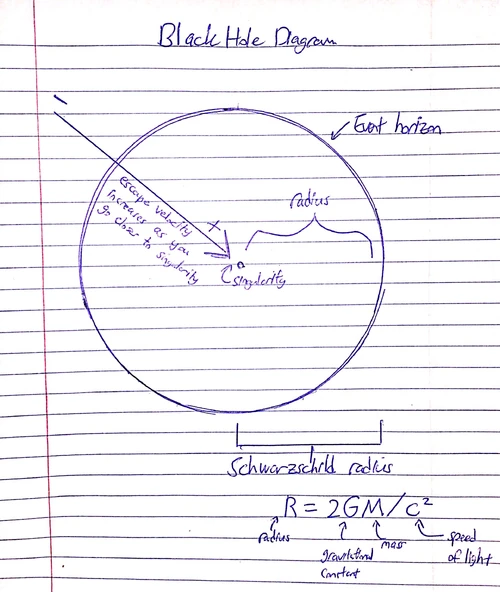 Black Hole Diagram
-
Event horizon
radius
escape velocity
increases as you
go closer to singularity
+
singularity
Schwarzschild radius
R = 2GM/c²
radius
gravitational
constant
mass
speed
of light